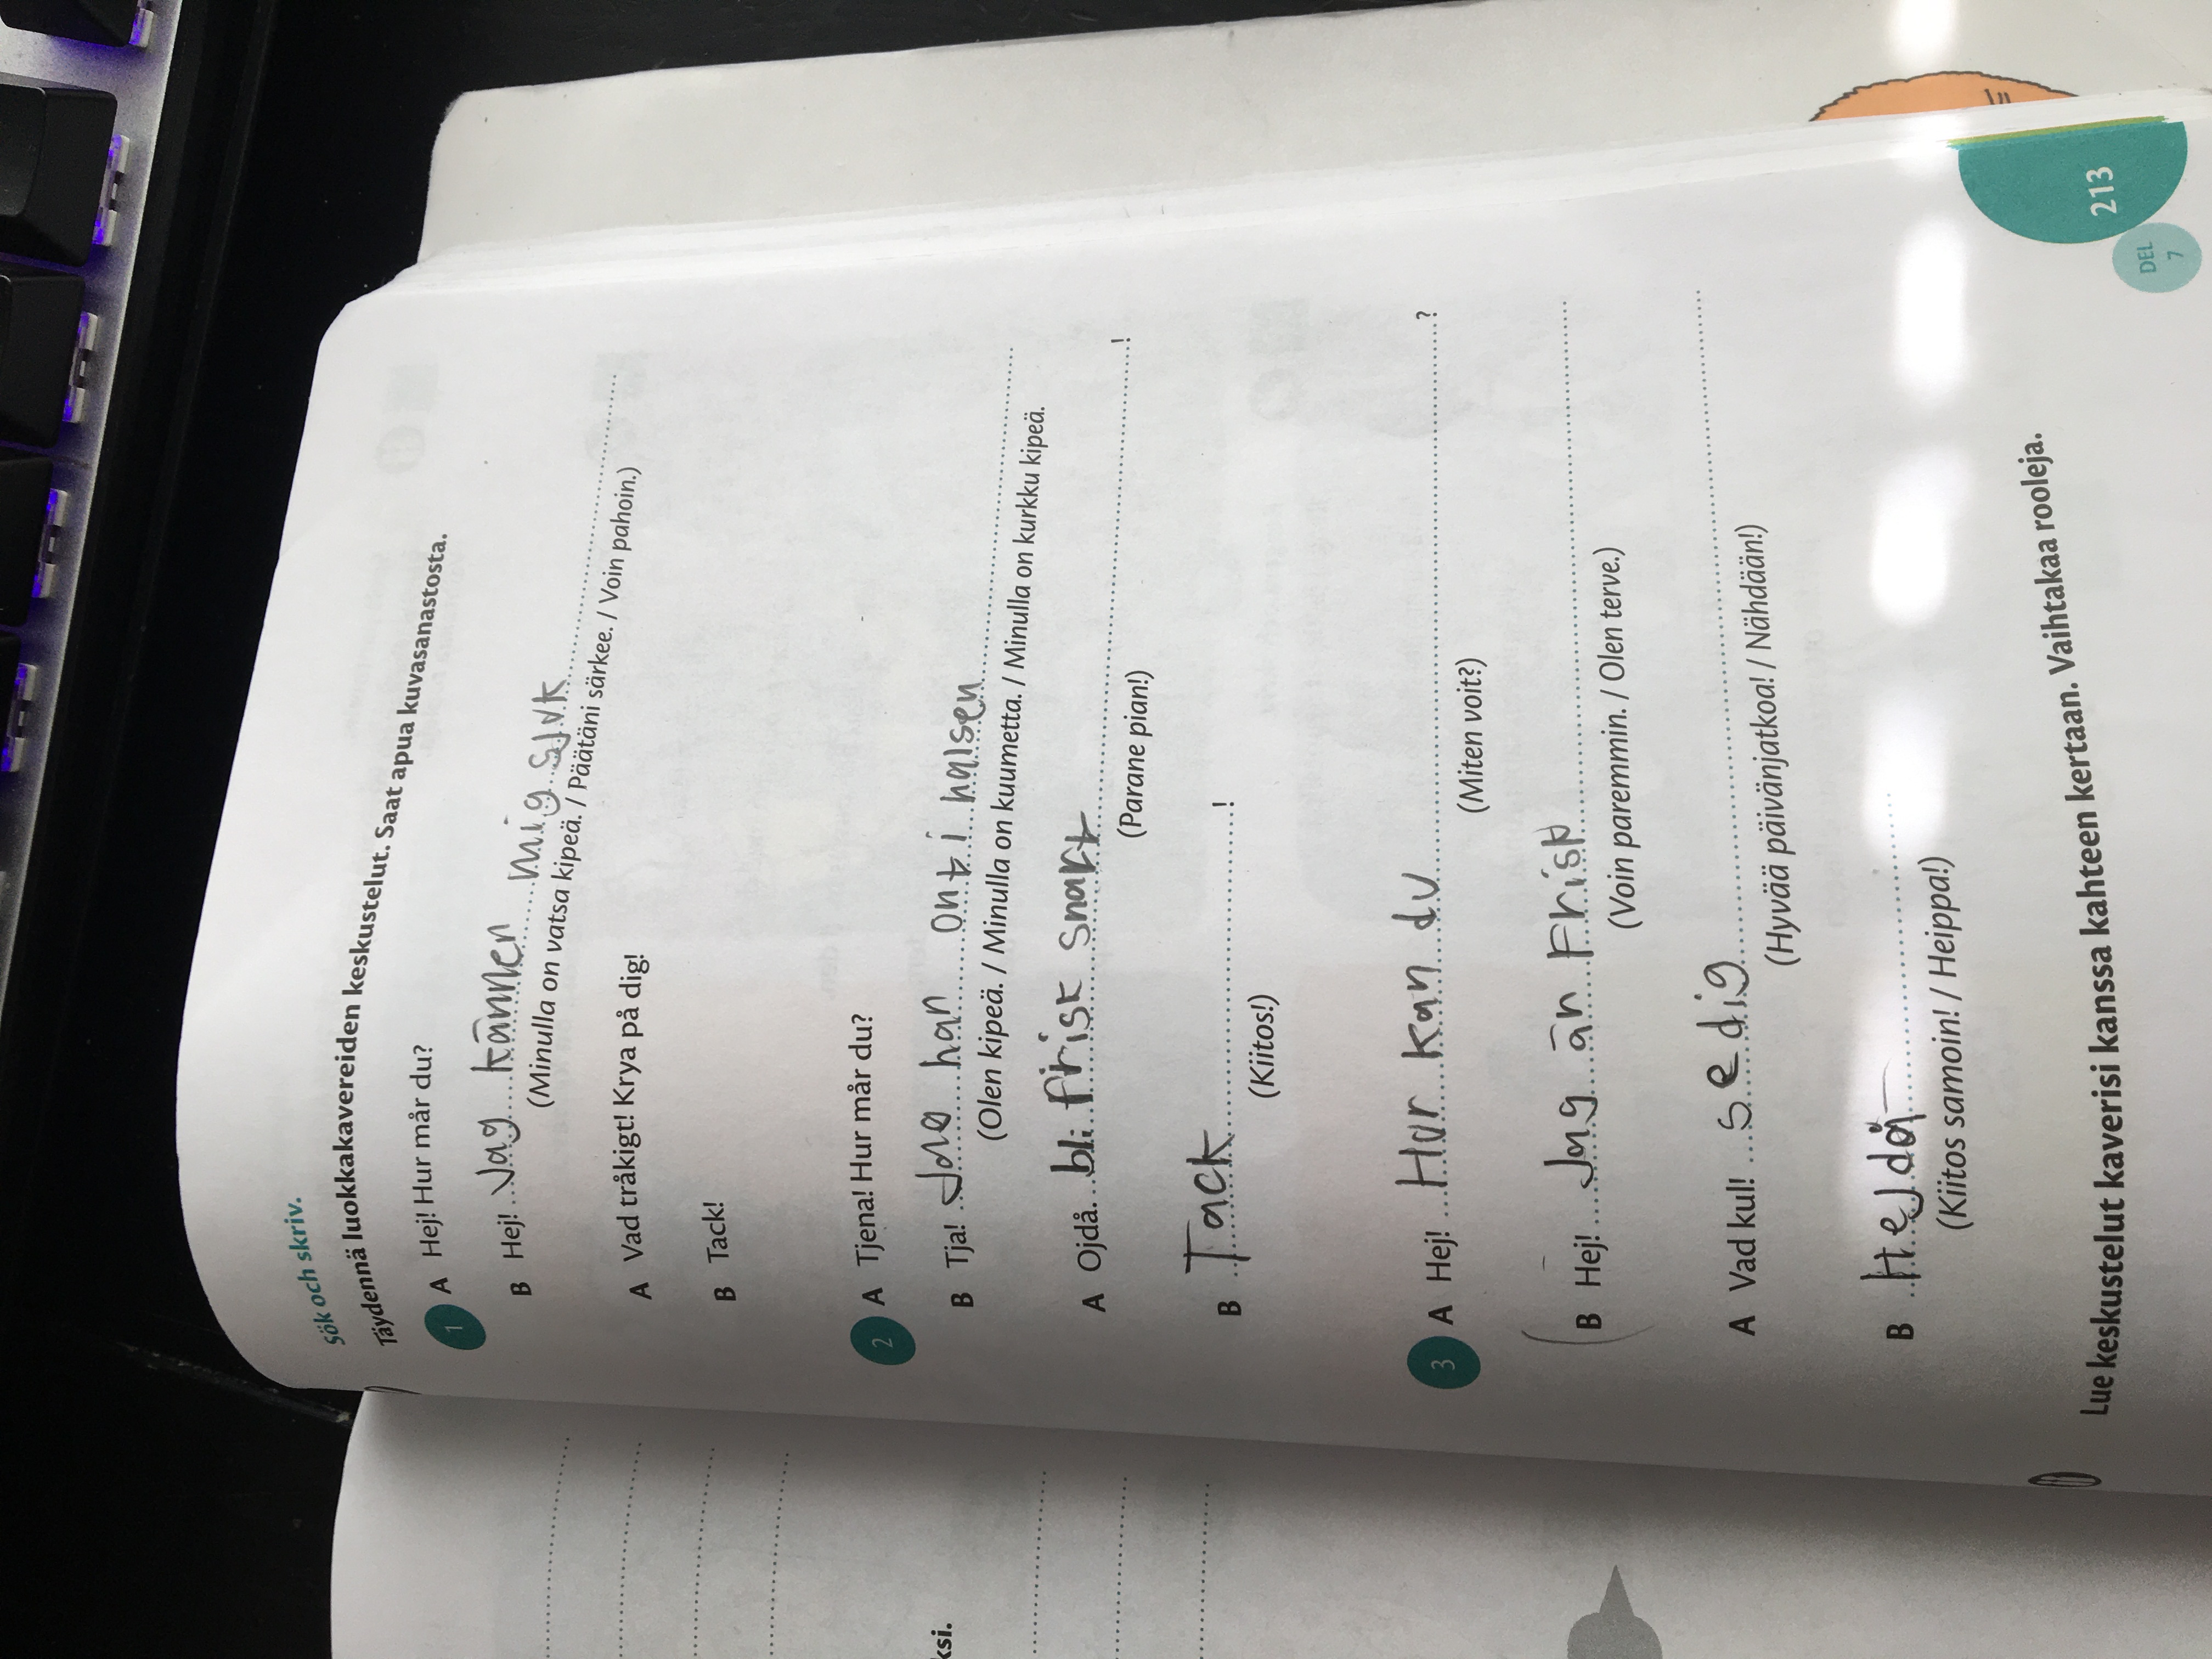 Sök och skriv.
Täydennä luokkakavereiden keskustelut. Saat apua kuvasanastosta.
1 A Hej! Hur mår du?
B Hej! Jag känner mig sjuk
(Minulla on vatsa kipeä. / Päätäni särkee. / Voin pahoin.)
A Vad tråkigt! Krya på dig!
B Tack!
2 A Tjena! Hur mår du?
B Tja! Jag har ont i halsen
(Olen kipeä. / Minulla on kuumetta. / Minulla on kurkku kipeä.
A Ojdå. bli frisk snart !
(Parane pian!)
B Tack !
(Kiitos!)
3 A Hej! Hur kan du ?
(Miten voit?)
B Hej! Jag är Frisk
(Voin paremmin. / Olen terve.)
A Vad kul! se dig
(Hyvää päivänjatkoa! / Nähdään!)
B Hejdå
(Kiitos samoin! / Heippa!)
Lue keskustelut kaverisi kanssa kahteen kertaan. Vaihtakaa rooleja.
DEL 7
213
ksi.